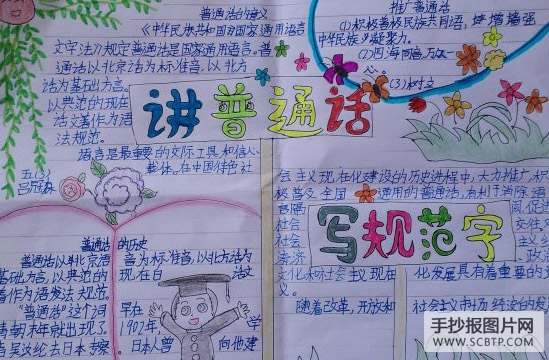 普通话的意义
《中华人民共和国国家通用语言
文字法》规定普通话是国家通用语言。普
通话以北京话为标准音,以北方
话为基础方言。
以典范的现在
话文著作为语
法规范。
语言是最重要的交际工具和信心
载体。在中国特色社
五(3)
推广普通话
(1)积极普及民族共同语,
增强
中华民族凝聚力。
(2)四海同音,万众
心
(3)树文
讲普通话
会主义现在化建设的历史进程中,大力推广,积
极普及全国
通用的普通话,有利于消除
语
社会
社会
经济
文化和社会主义现在
义。
随着改革,开放和
写规范字
化发展具有着重要的
社会主义市场经济的发
普通话的历史
普通话以北京语
音为标准音,以北方话为
基础方言,以典范的
现在白
话文
著作为语发法规范。
“普通话”这个词
早在
清朝末年就出现了。
1902年,
学
者吴汝纶去日本考察,
日本人曾
向他建
手抄报图片网
WWW.SCBTP.COM